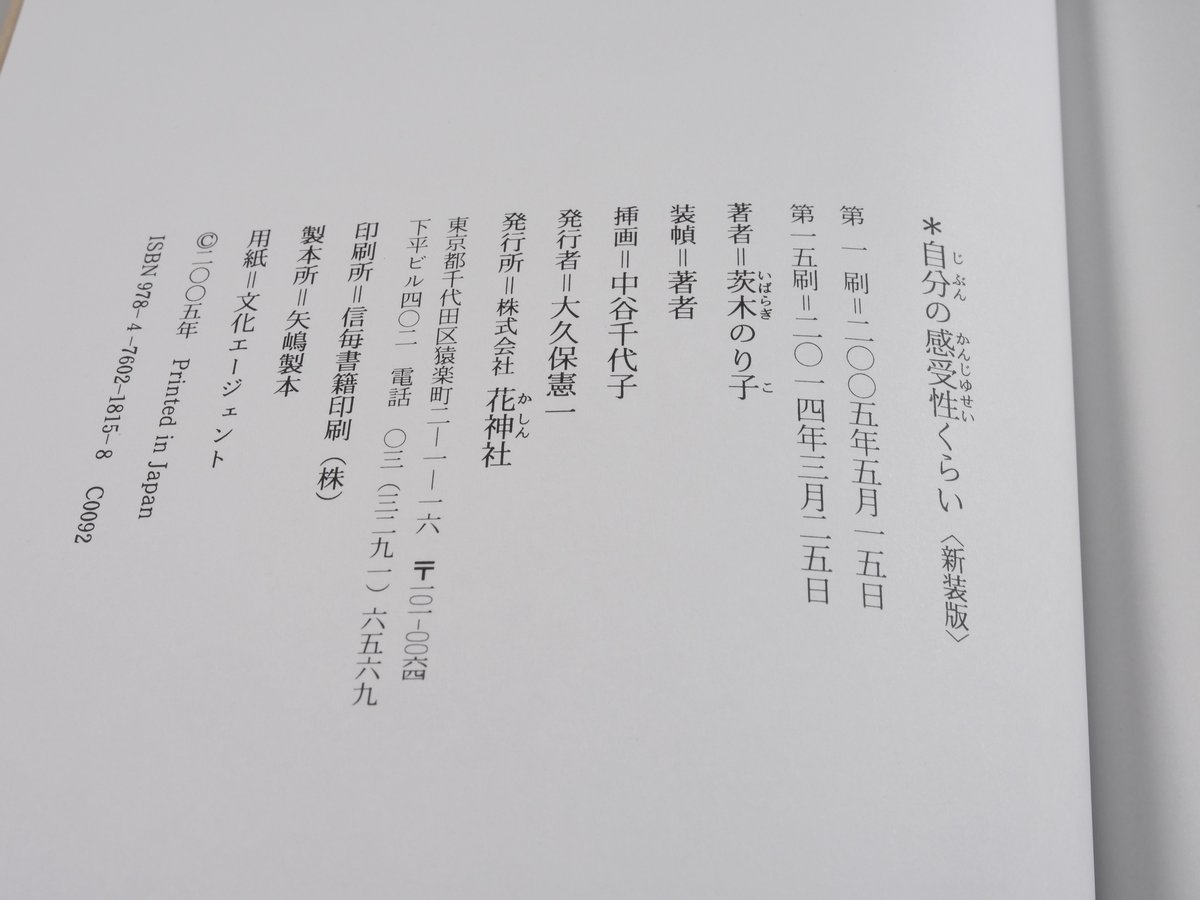 *自分の感受性くらい〈新装版〉
じぶん かんじゆせい
第一刷=二〇〇五年五月一五日
第一五刷=二〇一四年三月二五日
著者=茨木のり子
いばらぎ こ
装幀=著者
挿画=中谷千代子
発行者=大久保憲一
発行所=株式会社 花神社
かしん
東京都千代田区猿楽町二—一—一六 〒一〇一-〇〇六四
下平ビル四〇二 電話 〇三(三二九一)六五六九
印刷所=信毎書籍印刷(株)
製本所=矢嶋製本
用紙=文化エージェント
©二〇〇五年 Printed in Japan
ISBN 978-4-7602-1815-8 C0092